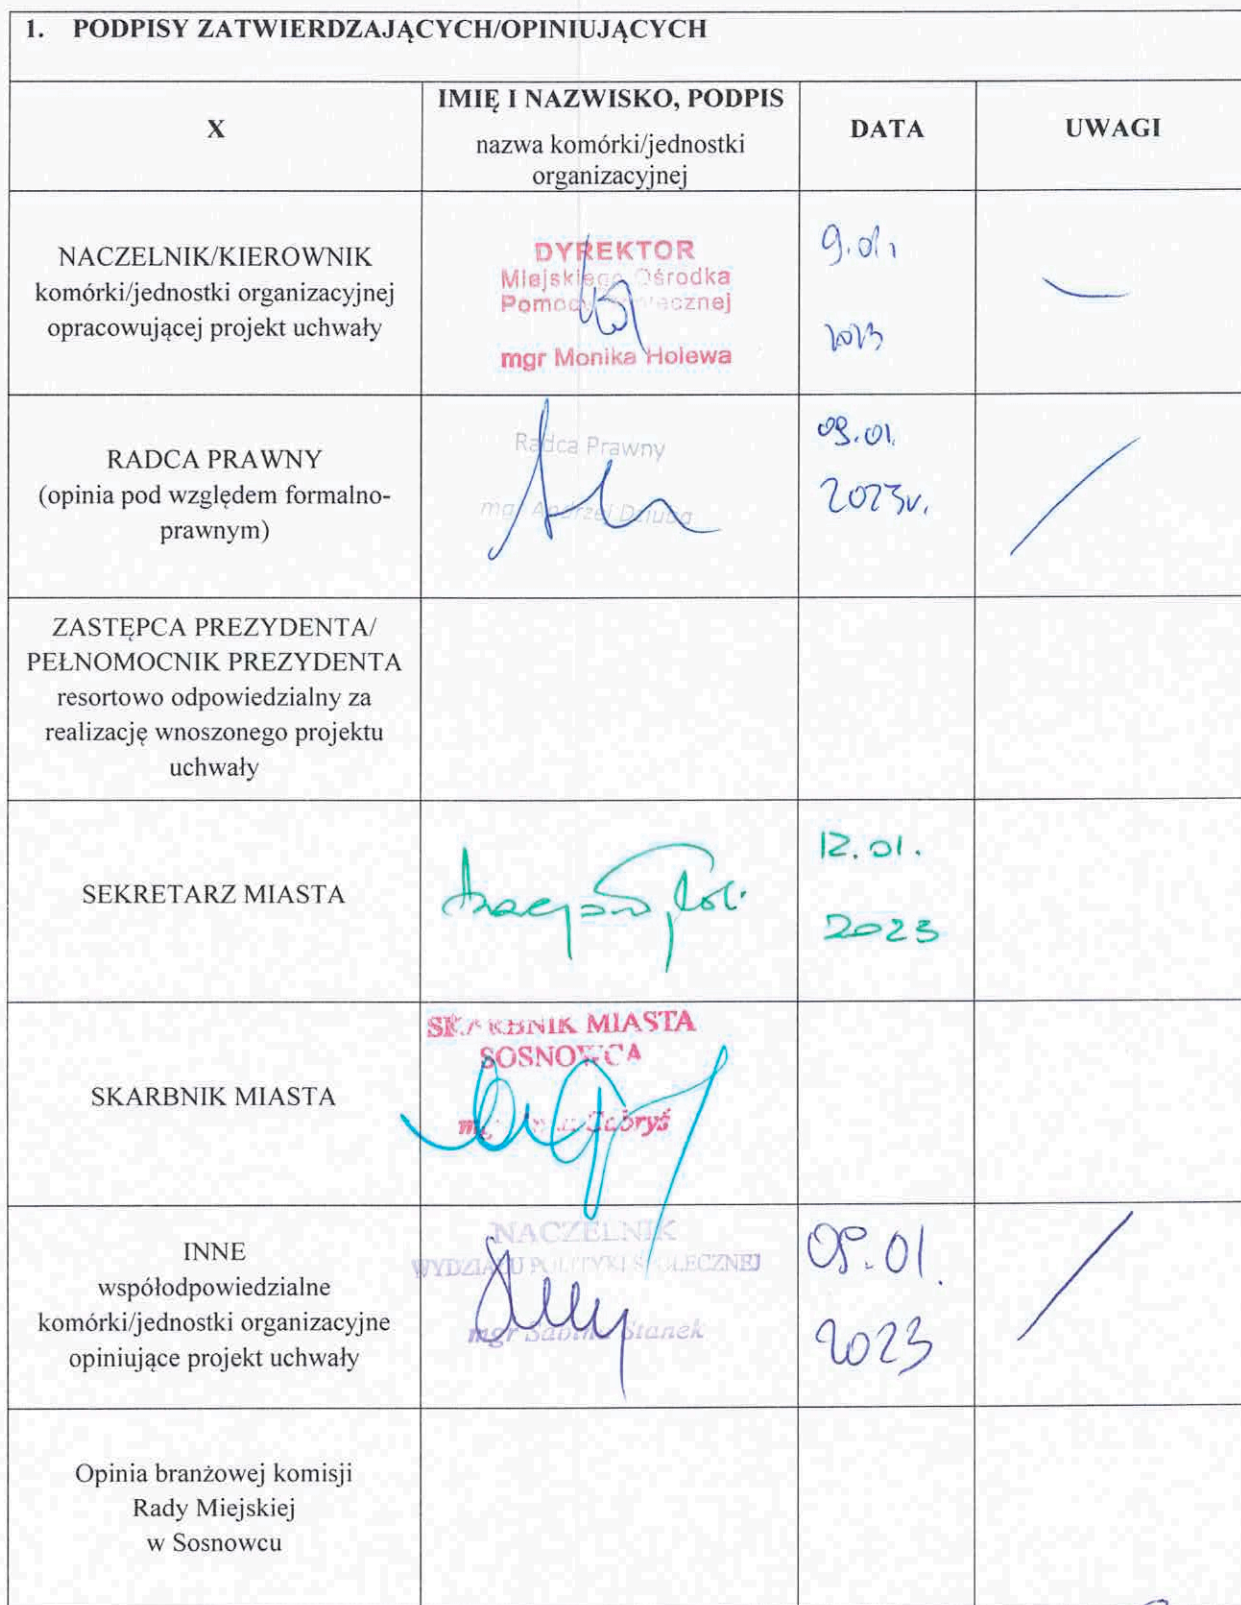 1. PODPISY ZATWIERDZAJĄCYCH/OPINIUJĄCYCH
X
IMIĘ I NAZWISKO, PODPIS
nazwa komórki/jednostki
organizacyjnej
DATA
UWAGI
NACZELNIK/KIEROWNIK
komórki/jednostki organizacyjnej
opracowującej projekt uchwały
DYREKTOR
Miejskiego Ośrodka
Pomocy Społecznej
mgr Monika Holewa
9.01.
2023
RADCA PRAWNY
(opinia pod względem formalno-
prawnym)
Radca Prawny
mgr Andrzej Dziuba
09.01.
2023r.
ZASTĘPCA PREZYDENTA/
PEŁNOMOCNIK PREZYDENTA
resortowo odpowiedzialny za
realizację wnoszonego projektu
uchwały
SEKRETARZ MIASTA
12.01.
2023
SKARBNIK MIASTA
SKARBNIK MIASTA
SOSNOWCA
mgr Gabryś
INNE
współodpowiedzialne
komórki/jednostki organizacyjne
opiniujące projekt uchwały
NACZELNIK
WYDZIAŁU POLITYKI SPOŁECZNEJ
mgr Sabina Stanek
09.01.
2023
Opinia branżowej komisji
Rady Miejskiej
w Sosnowcu